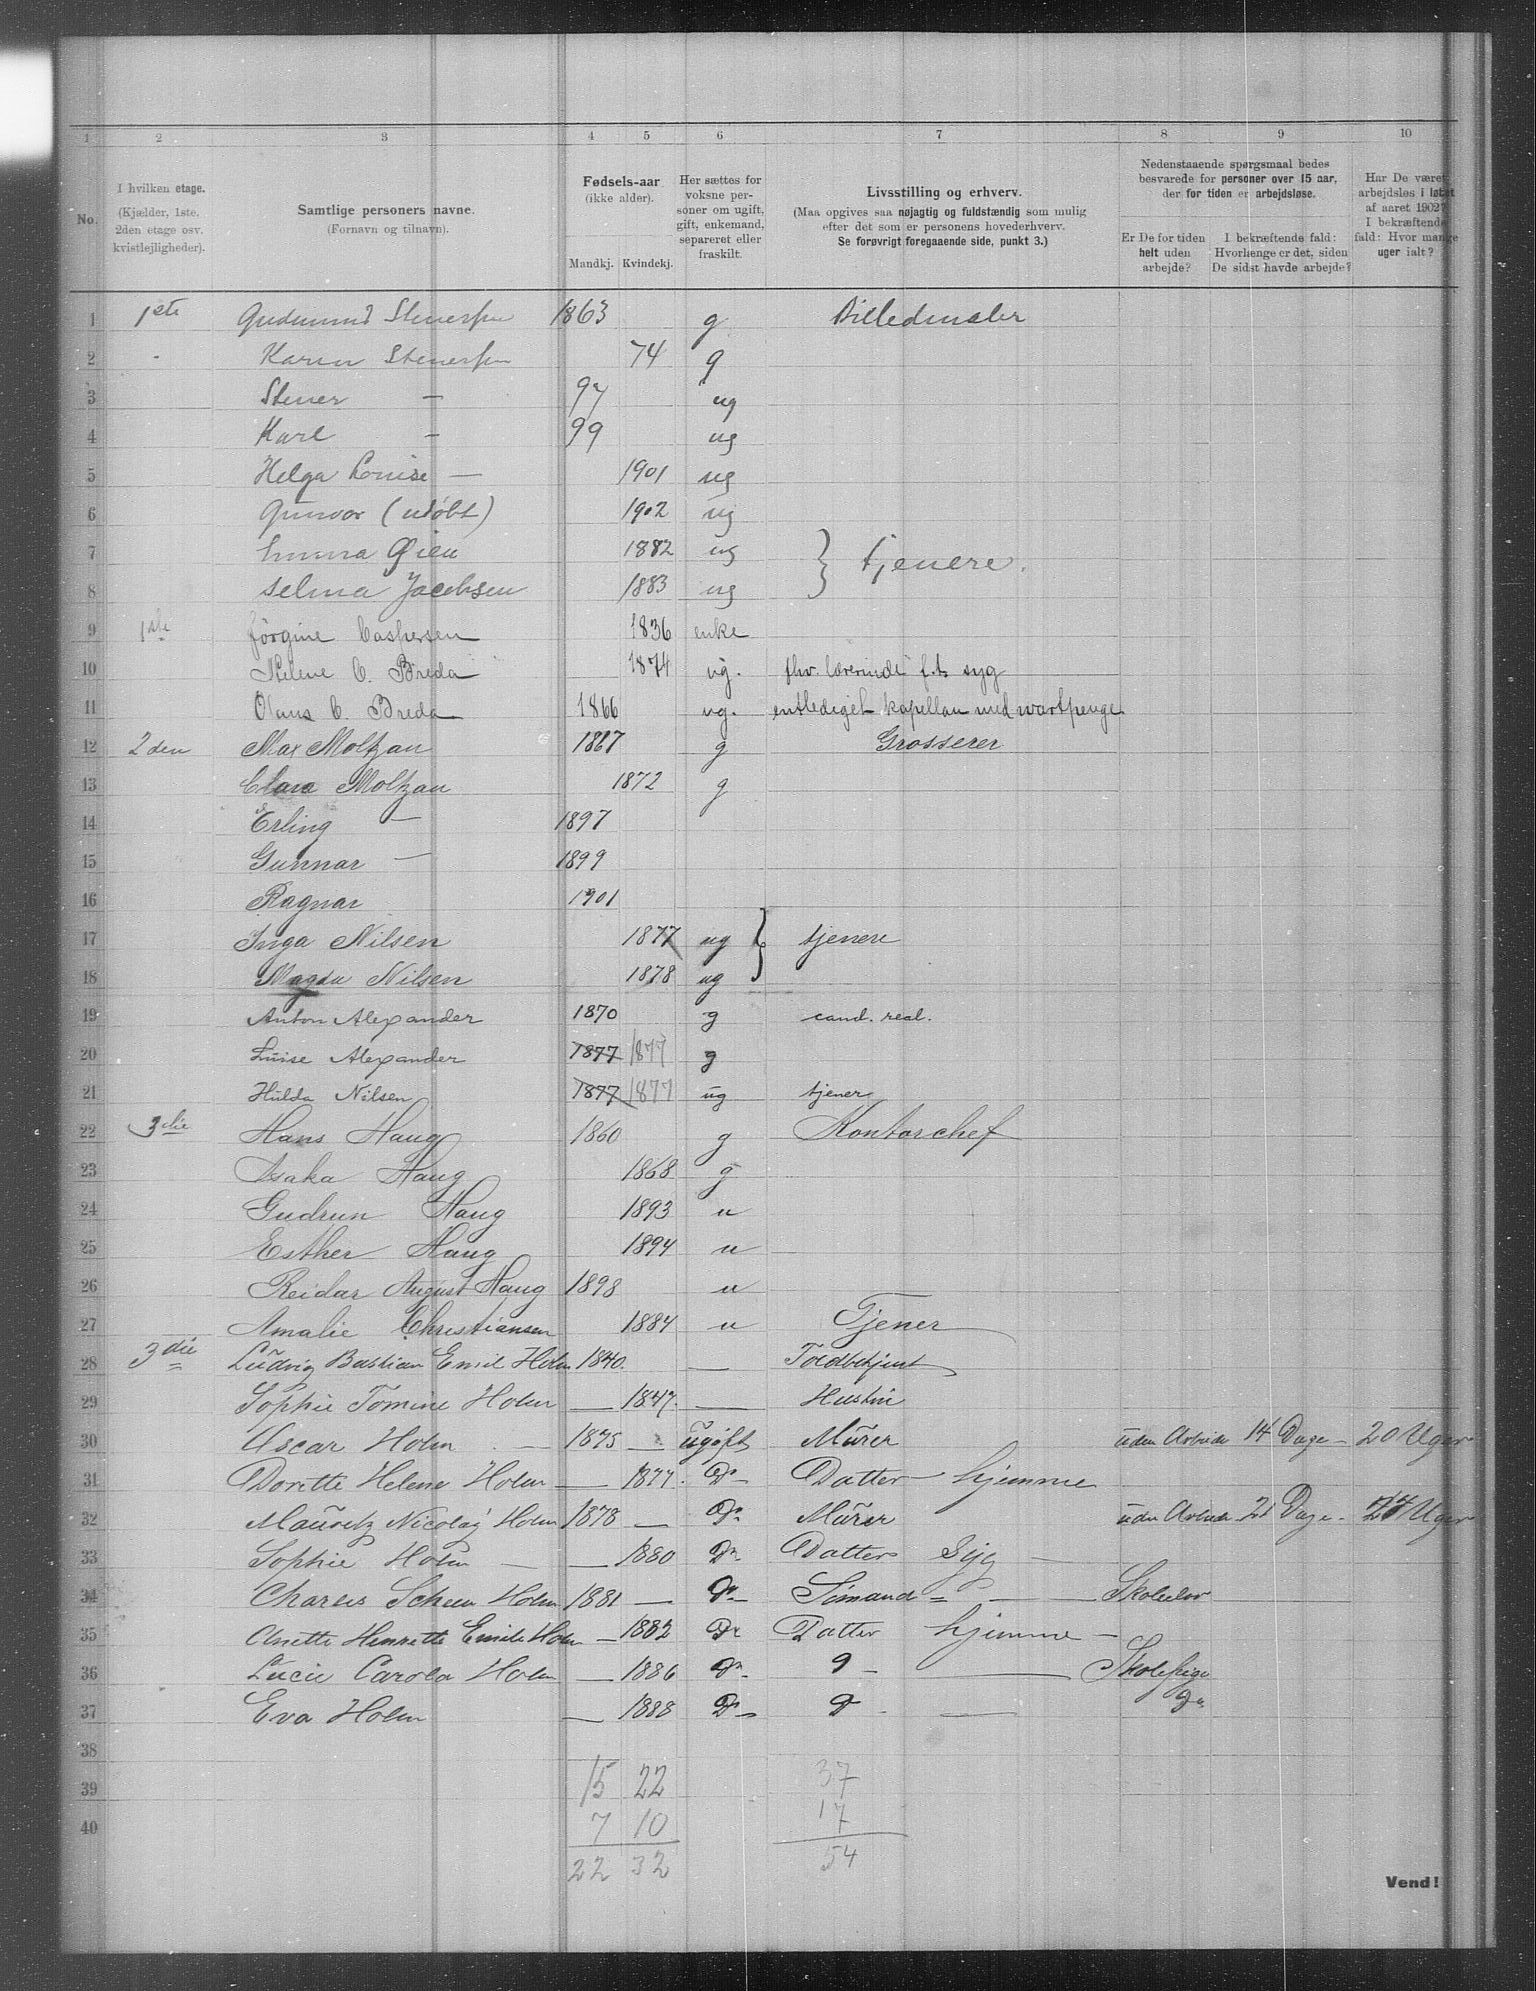 1 2 3 4 5 6 7 8 9 10
No.
I hvilken etage.
(Kjælder, 1ste.
2den etage osv.
kvistlejligheder).
Samtlige personers navne.
(Fornavn og tilnavn).
Fødsels-aar
(ikke alder).
Mandkj. Kvindekj.
Her sættes for
voksne per-
soner om ugift,
gift, enkemand,
separeret eller
fraskilt.
Livsstilling og erhverv.
(Maa opgives saa nøjagtig og fuldstændig som mulig
efter det som er personens hovederhverv.
Se forøvrigt foregaaende side, punkt 3.)
Nedenstaaende spørgsmaal bedes
besvarede for personer over 15 aar,
der for tiden er arbejdsløse.
Er De for tiden
helt uden
arbejde?
I bekræftende fald:
Hvorlænge er det, siden
De sidst havde arbejde?
Har De været
arbejdsløs i løbet
af aaret 1902?
I bekræftende
fald: Hvor mange
uger ialt?
1 1ste Gudmund Stenersen 1863 g Billedmaler
2 - Karen Stenersen 74 g
3 Stener — 97 ug
4 Karl — 99 ug
5 Helga Louise — 1901 ug
6 Gunvor (udøbt) 1902 ug
7 Emma Øien 1882 ug } tjenere.
8 Selma Jacobsen 1883 ug
9 1ste Jörgine Caspersen 1836 enke
10 Helene C. Breda 1874 ug. fhv. lærerinde f.t. syg
11 Olaus C. Breda 1866 ug. entlediget kapellan med vartpenge
12 2den Max Moltzau 1867 g Grosserer
13 Clara Moltzau 1872 g
14 Erling — 1897
15 Gunnar — 1899
16 Ragnar 1901
17 Inga Nilsen 1877 ug } tjenere
18 Magda Nilsen 1878 ug
19 Anton Alexander 1870 g cand. real.
20 Luise Alexander 1877 1877 g
21 Hulda Nilsen 1877 1877 ug tjener
22 3die Hans Haug 1860 g Kontorchef
23 Asaka Haug 1868 g
24 Gudrun Haug 1893 u
25 Esther Haug 1894 u
26 Reidar August Haug 1898 u
27 Amalie Christiansen 1884 u Tjener
28 3die Ludvig Bastian Emil Holm 1840. — Toldbetjent
29 Sophie Tomine Holm — 1847. — Hustru
30 Oscar Holm — 1875 — ugift Murer uden Arbeide 14 Dage — 20 Uger
31 Dorette Helene Holm — 1877. Do Datter hjemme
32 Mauritz Nicolay Holm 1878 — Do Murer uden Arbeide 21 Dage - Uger
33 Sophie Holm — 1880 Do Datter Syg —
34 Charles Scheen Holm 1881 — Do Sømand = —
35 Anette Henrette Emilie Holm — 1882 Do Datter hjemme —
36 Lucie Carola Holm — 1886 Do D — Skolepige
37 Eva Holm — 1888 Do D — Do
38
39 15 22 37
40 7 10 17
22 32 54
Vend!